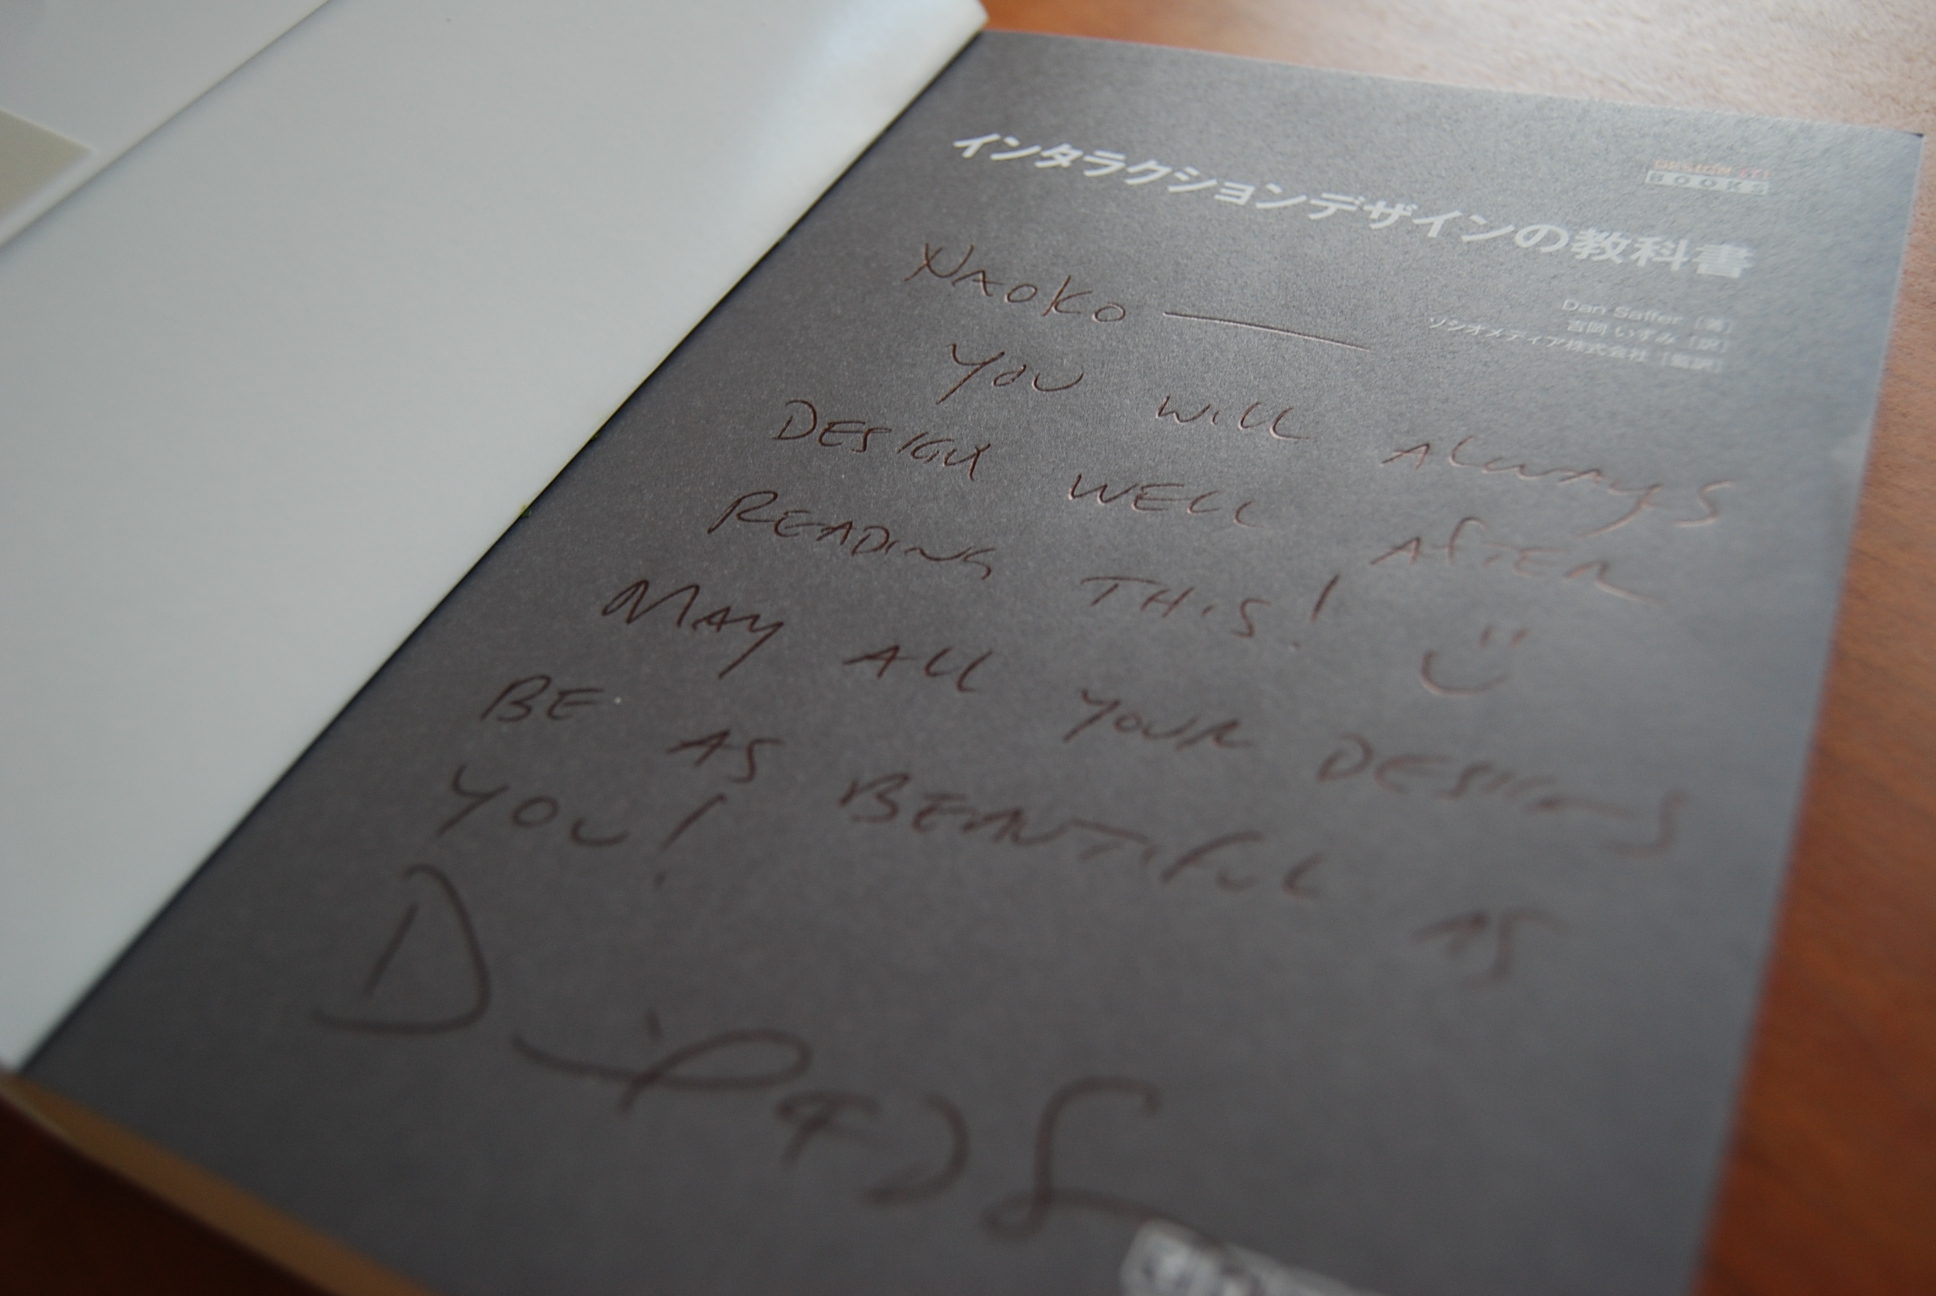 インタラクションデザインの教科書
BOOKS
Dan Saffer [著]
吉岡 いずみ [訳]
ソシオメディア株式会社 [監訳]
NAOKO —
YOU WILL ALWAYS
DESIGN WELL AFTER
READING THIS! :)
MAY ALL YOUR DESIGNS
BE AS BEAUTIFUL AS
YOU!